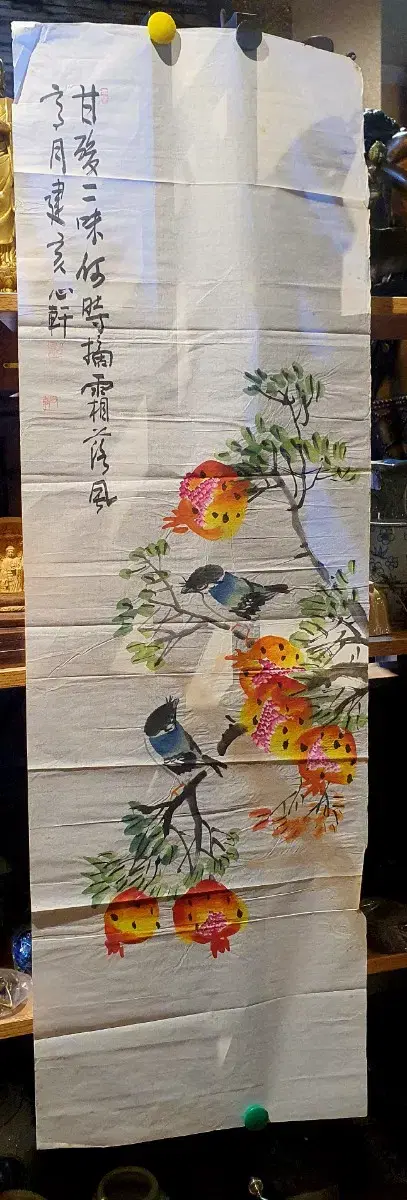 甘酸二味何時摘霜落風
高月建亥心軒